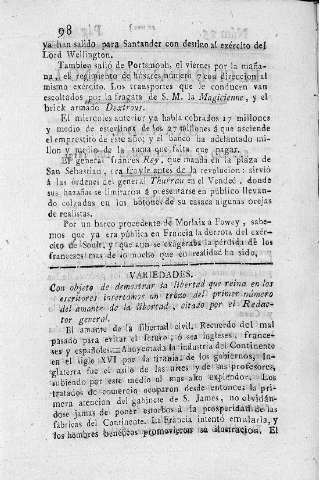 98
ya han salido para Santander con destino al exército del
Lord Wellington.
Tambien salió de Portsmouh, el viernes por la maña-
na, el regimiento de húsares número 7 con direccion al
mismo exército. Los transportes que le conducen van
escoltados por la fragata de S. M. la Magicienne, y el
brick armado Dextrous.
El miercoles anterior ya habia cobrados 17 millones
y medio de esterlinas de los 27 millones á que asciende
el emprestito de este año; y el banco ha adelantado mi-
llon y medio de la suma que falta que pagar.
El general frances Rey, que manda en la plaza de
San Sebastian, era frayle antes de la revolucion: sirvió
á las órdenes del general Thurrau en el Vendeé, donde
sus hazañas se limitaron á presentarse en público llevan-
do colgadas en los botones de su casaca algunas orejas
de realistas.
Por un barco procedente de Morlaix á Fowey, sabe-
mos que ya era pública en Francia la derrota del exér-
cito de Soult, y que aun se exâgeraba la pérdida de los
franceses mas de lo mucho que en realidad ha sido.
VARIEDADES.
Con objeto de demostrar la libertad que reina en los
escritores insertamos un trozo del primer número
del amante de la libertad, citado por el Redac-
tor general.
El amante de la libertad civil. Recuerdo del mal
pasado para evitar el futuro, ó sea ingleses, france-
ses y españoles. Ahuyentada la industria del Continente
en el siglo XVI por la tirania de los gobiernos, In-
glaterra fue el asilo de las artes y de sus profesores,
subiendo por este medio al mas alto explendor. Los
tratados de comercio ocuparon desde entonces la pri-
mera atencion del gabinete de S. James, no olvidán-
dose jamas de poner estorbos á la prosperidad de las
fábricas del Continente. La Francia intentó emularla, y
los hombres benéficos promovieron su ilustracion. El